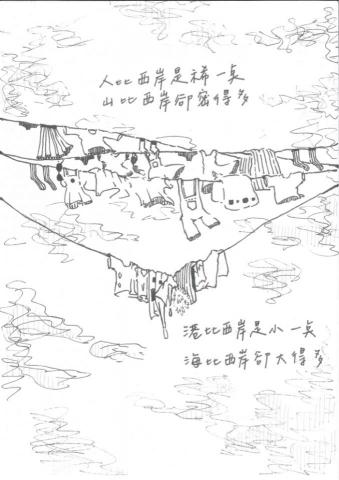 人比西岸是稀一點
山比西岸卻密得多
港比西岸是小一點
海比西岸卻大得多